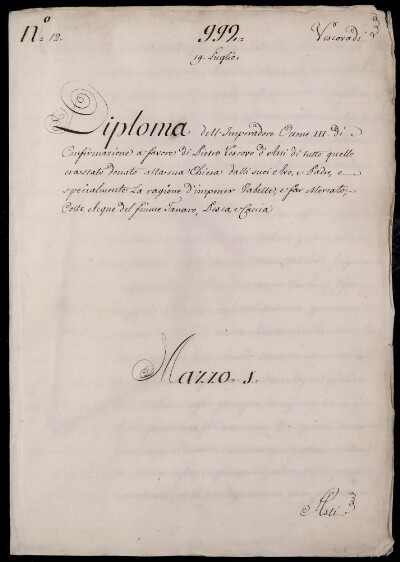 N.º 12.
992.
Vescovadi
19. Luglio.
Diploma dell'Imperadore Ottone III. di
Confirmazione a favore di Pietro Vescovo d'Asti di tutto quello
era stato donato alla sua Chiesa dalli suoi Avo, e Padre, e
specialmente la ragione d'imponer Gabelle, e far Mercato,
Colle Acque del fiume Tanaro, Pesca, e Caccia
Mazzo. 1.
Asti